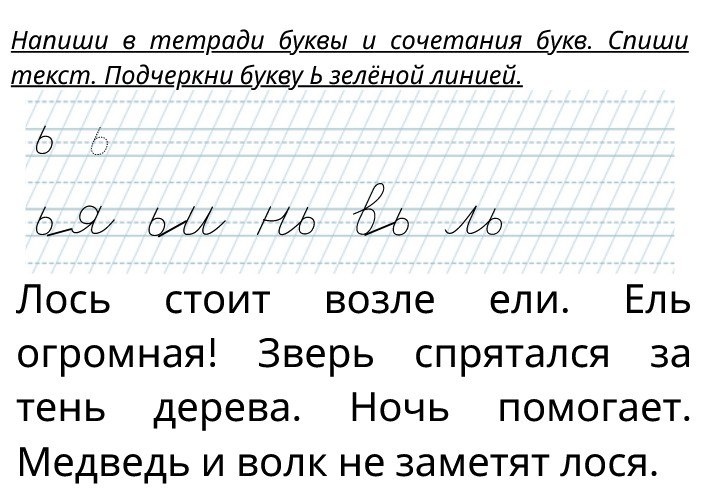 Напиши в тетради буквы и сочетания букв. Спиши
текст. Подчеркни букву Ь зелёной линией.
ь ь
ья ьи нь вь ль
Лось стоит возле ели. Ель
огромная! Зверь спрятался за
тень дерева. Ночь помогает.
Медведь и волк не заметят лося.